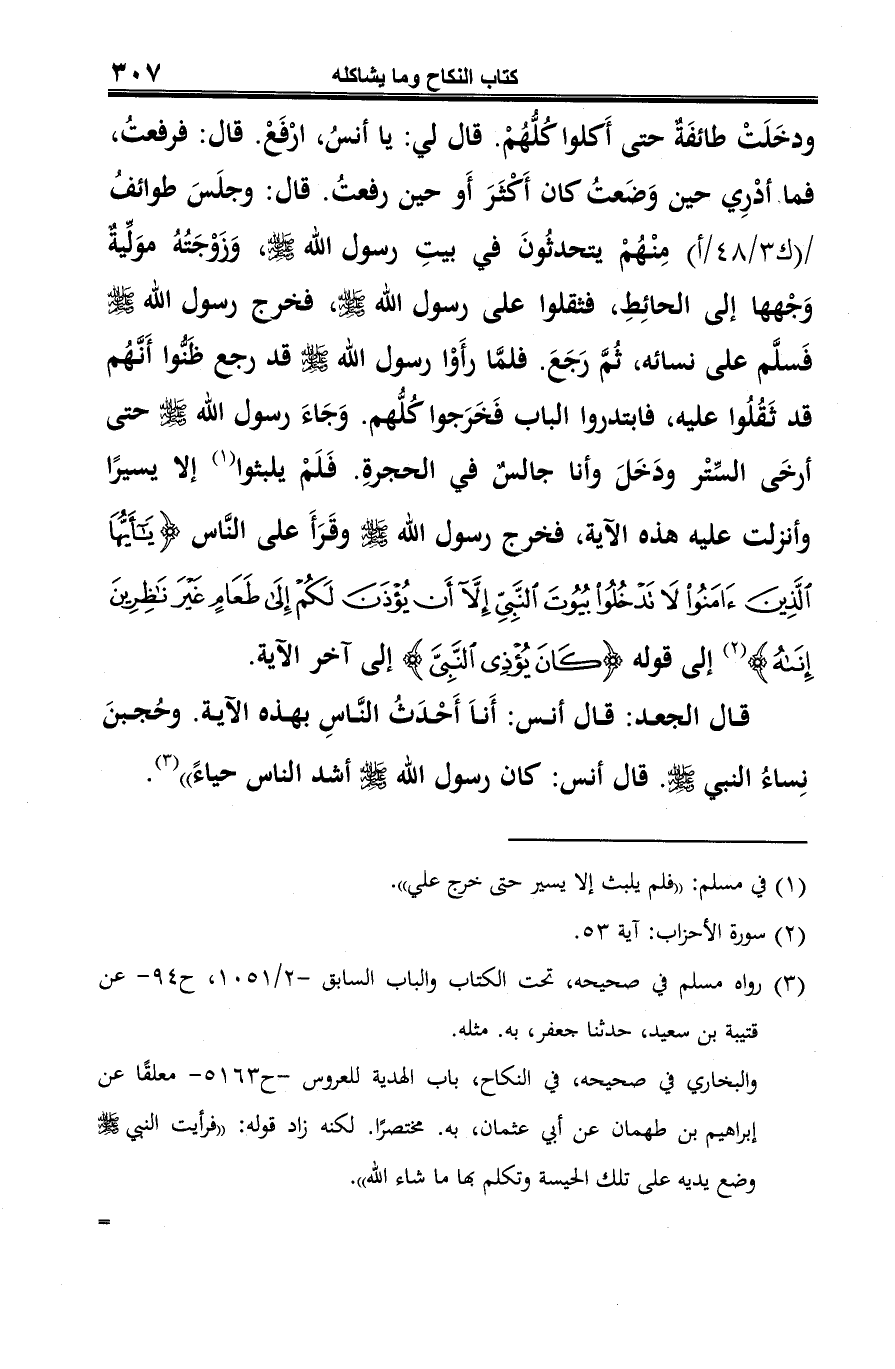 كتاب النكاح وما يشاكله ٣٠٧
ودخَلَتْ طائفَةٌ حتى أَكلوا كُلُّهُمْ. قال لي: يا أنسُ، ارْفَعْ. قال: فرفعتُ،
فما أدْرِي حين وَضَعتُ كان أَكْثَرَ أَو حين رفعتُ. قال: وجلَسَ طوائفُ
/(ك٤٨/٣/أ) مِنْهُمْ يتحدثُونَ في بيتِ رسول الله ﷺ، وَزَوْجَتُهُ مولِّيةٌ
وَجْهها إلى الحائِطِ، فثقلوا على رسول الله ﷺ، فخرج رسول الله ﷺ
فَسلَّم على نسائه، ثُمَّ رَجَعَ. فلمَّا رأَوْا رسول الله ﷺ قد رجع ظَنُّوا أَنَّهُم
قد ثَقُلُوا عليه، فابتدروا الباب فَخَرَجوا كُلُّهم. وَجَاءَ رسول الله ﷺ حتى
أرخَى السِّتْر ودَخَلَ وأنا جالسٌ في الحجرةِ. فَلَمْ يلبثوا(١) إلا يسيرًا
وأنزلت عليه هذه الآية، فخرج رسول الله ﷺ وقَرَأَ على النَّاس ﴿يَـٰٓأَيُّهَا
ٱلَّذِينَ ءَامَنُوا۟ لَا تَدْخُلُوا۟ بُيُوتَ ٱلنَّبِيِّ إِلَّآ أَن يُؤْذَنَ لَكُمْ إِلَىٰ طَعَامٍ غَيْرَ نَـٰظِرِينَ
إِنَىٰهُ﴾(٢) إلى قوله ﴿كَانَ يُؤْذِى ٱلنَّبِيَّ﴾ إلى آخر الآية.
قال الجعد: قال أنس: أَنا أَحْدَثُ النَّاسِ بهذه الآية. وحُجبنَ
نِساءُ النبي ﷺ. قال أنس: كان رسول الله ﷺ أشد الناس حياءً»(٣).
(١) في مسلم: «فلم يلبث إلا يسير حتى خرج علي».
(٢) سورة الأحزاب: آية ٥٣.
(٣) رواه مسلم في صحيحه، تحت الكتاب والباب السابق -١٠٥١/٢، ح٩٤- عن
قتيبة بن سعيد، حدثنا جعفر، به. مثله.
والبخاري في صحيحه، في النكاح، باب الهدية للعروس -ح٥١٦٣- معلقًا عن
إبراهيم بن طهمان عن أبي عثمان، به. مختصرًا. لكنه زاد قوله: «فرأيت النبي ﷺ
وضع يديه على تلك الحيسة وتكلم بها ما شاء الله».
=